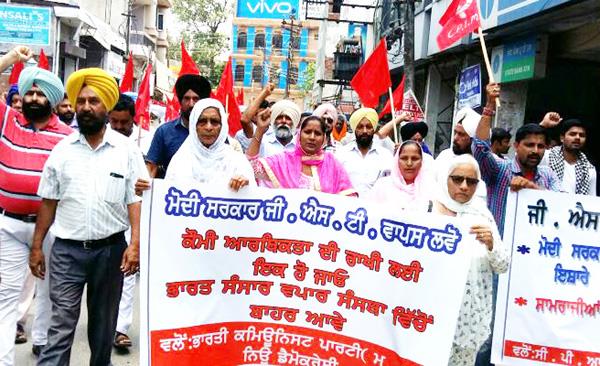 ANSALI'S
vivo
C.P.I.M
STATE BANK
ਮੋਦੀ ਸਰਕਾਰ ਜੀ . ਐਸ . ਟੀ . ਵਾਪਸ ਲਵੋ
ਕੌਮੀ ਆਰਥਿਕਤਾ ਦੀ ਰਾਖੀ ਲਈ
ਇਕ ਹੋ ਜਾਓ
ਭਾਰਤ ਸੰਸਾਰ ਵਪਾਰ ਸੰਸਥਾ ਵਿੱਚੋਂ
ਬਾਹਰ ਆਵੇ
ਵਲੋਂ:ਭਾਰਤੀ ਕਮਿਊਨਿਸਟ ਪਾਰਟੀ( ਮ
ਨਿਊ ਡੈਮੋਕਰੇਸੀ
ਜੀ . ਐਸ
* ਮੋਦੀ ਸਰਕ
ਇਸ਼ਾਰੇ
* ਸਾਮਰਾਜੀਆਂ
ਵਲੋਂ : ਸੀ . ਪੀ . ਆ